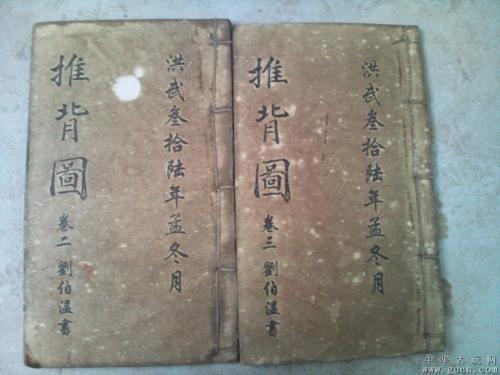 洪武叁拾陆年孟冬月
推背圖
卷三 劉伯温書
洪武叁拾陆年孟冬月
推背圖
卷二 劉伯温書
中华古玩网
www.gucn.com